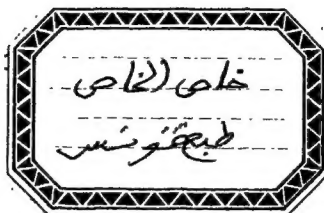 خاص الخاص
طبع تونس